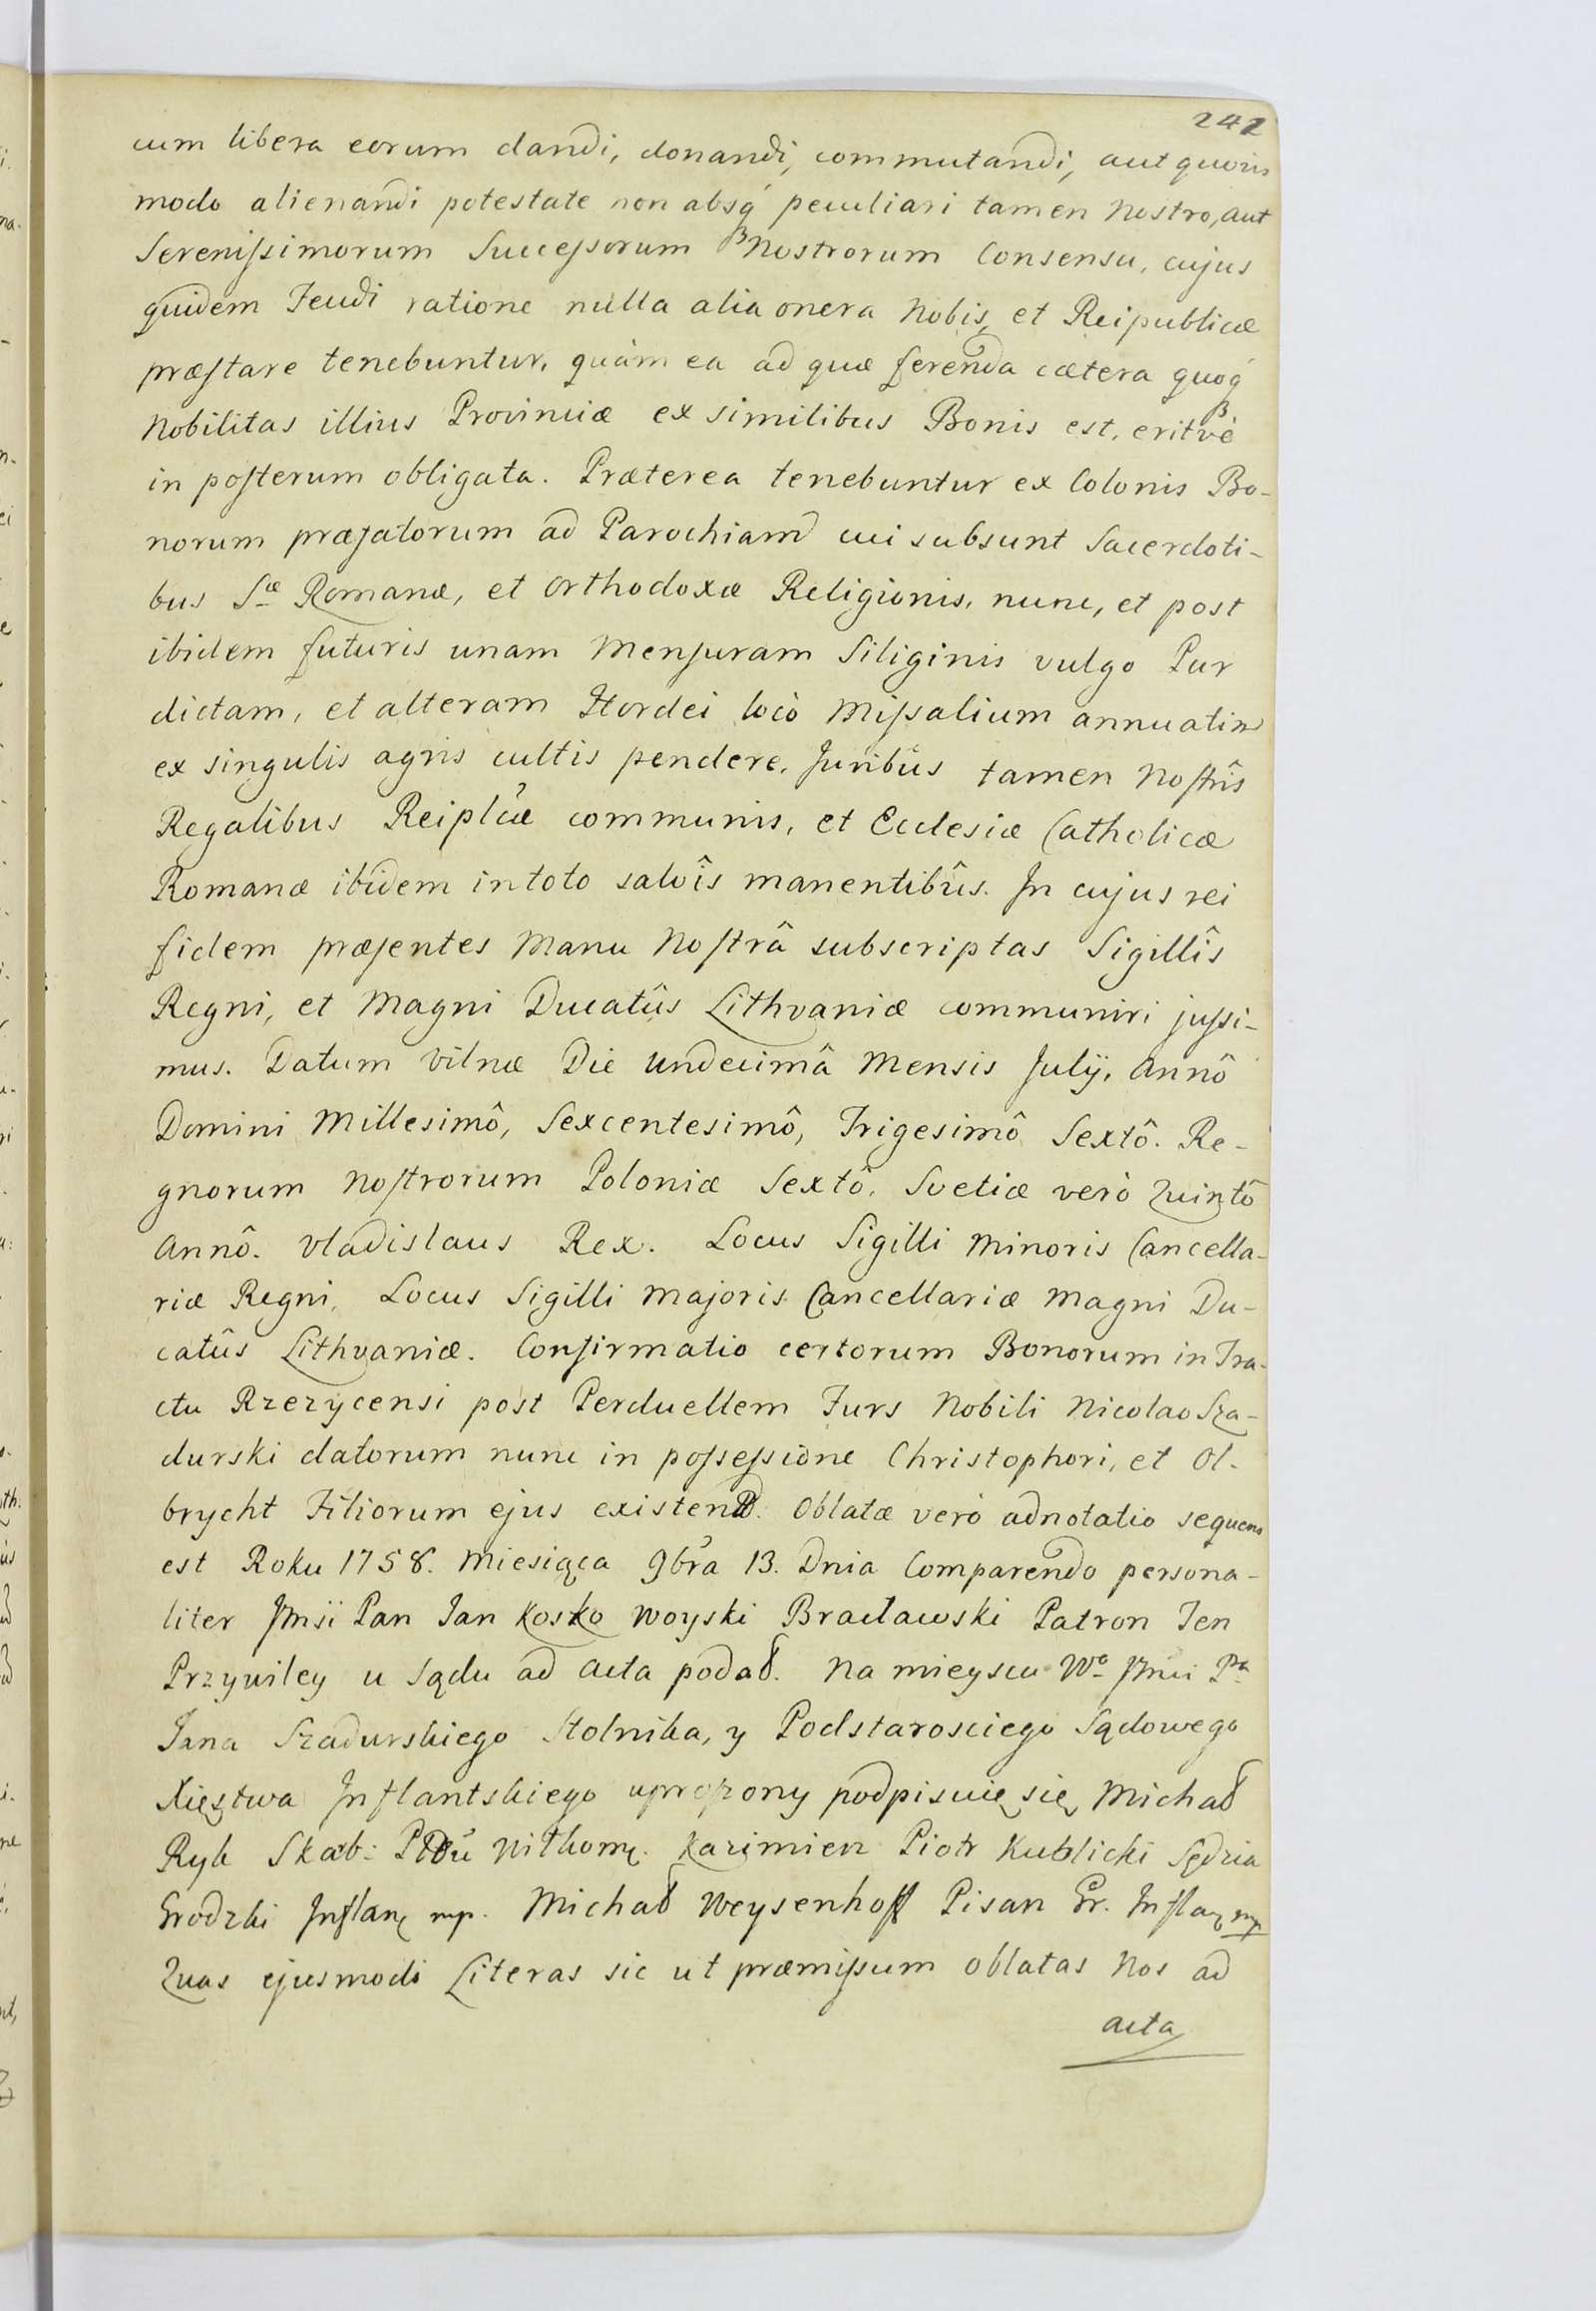 242
cum libera eorum dandi, donandi, commutandi, aut quovis
modo alienandi potestate non absq́ peculiari tamen Nostro, aut
Serenissimorum Successorum Nostrorum Consensu, cujus
quidem Feudi ratione nulla alia onera Nobis, et Reipublicæ
præstare tenebuntur, quàm ea ad quæ ferenda cætera quoq́
Nobilitas illius Provinciæ ex similibus Bonis est, eritvè
in posterum obligata. Præterea tenebuntur ex Colonis Bo-
norum præfatorum ad Parochiam cui subsunt Sacerdoti-
bus Sæ Romanæ, et Orthodoxæ Religionis, nunc, et post
ibidem futuris unam Mensuram Siliginis vulgo Pur
dictam, et alteram Hordei locò Missalium annuatim
ex singulis agris cultis pendere. Juribûs tamen Nostrîs
Regalibus Reiplcæ communis, et Ecclesiæ Catholicæ
Romanæ ibidem in toto salvîs manentibûs. In cujus rei
fidem præsentes Manu Nostrâ subscriptas Sigillîs
Regni, et Magni Ducatûs Lithvaniæ communiri jussi-
mus. Datum Vilnæ Die Undecimâ Mensis Julÿ, Annô
Domini Millesimô, Sexcentesimô, Trigesimô Sextô. Re-
gnorum Nostrorum Poloniæ Sextô, Svetiæ verò Quintô
Annô. Vladislaus Rex. Locus Sigilli Minoris Cancella-
riæ Regni, Locus Sigilli Majoris Cancellariæ Magni Du-
catûs Lithvaniæ. Confirmatio certorum Bonorum in Tra-
ctu Rzezycensi post Perduellem Furs Nobili Nicolao Sza-
durski datorum nunc in possessione Christophori, et Ol-
brycht Filiorum ejus existend. Oblatæ verò adnotatio sequens
est Roku 1758. Miesiąca 9bra 13. Dnia Comparendo persona-
liter Jmsi Pan Jan Kosko Woyski Bracławski Patron Ten
Przywiley u Sądu ad Acta podał. Na mieyscu Wo Jmci Pa
Jana Szadurskiego Stolnika, y Podstarosciego Sądowego
Xięstwa Inflantskiego uproszony podpisuię się Michał
Ryk Skarb: Kazimierz Piotr Kublicki Sędzia
Grodzki Inflan mp. Michał Weysenhoff Pisarz Gr. Inflan mp
Quas ejusmodi Literas sic ut præmissum oblatas Nos ad
acta